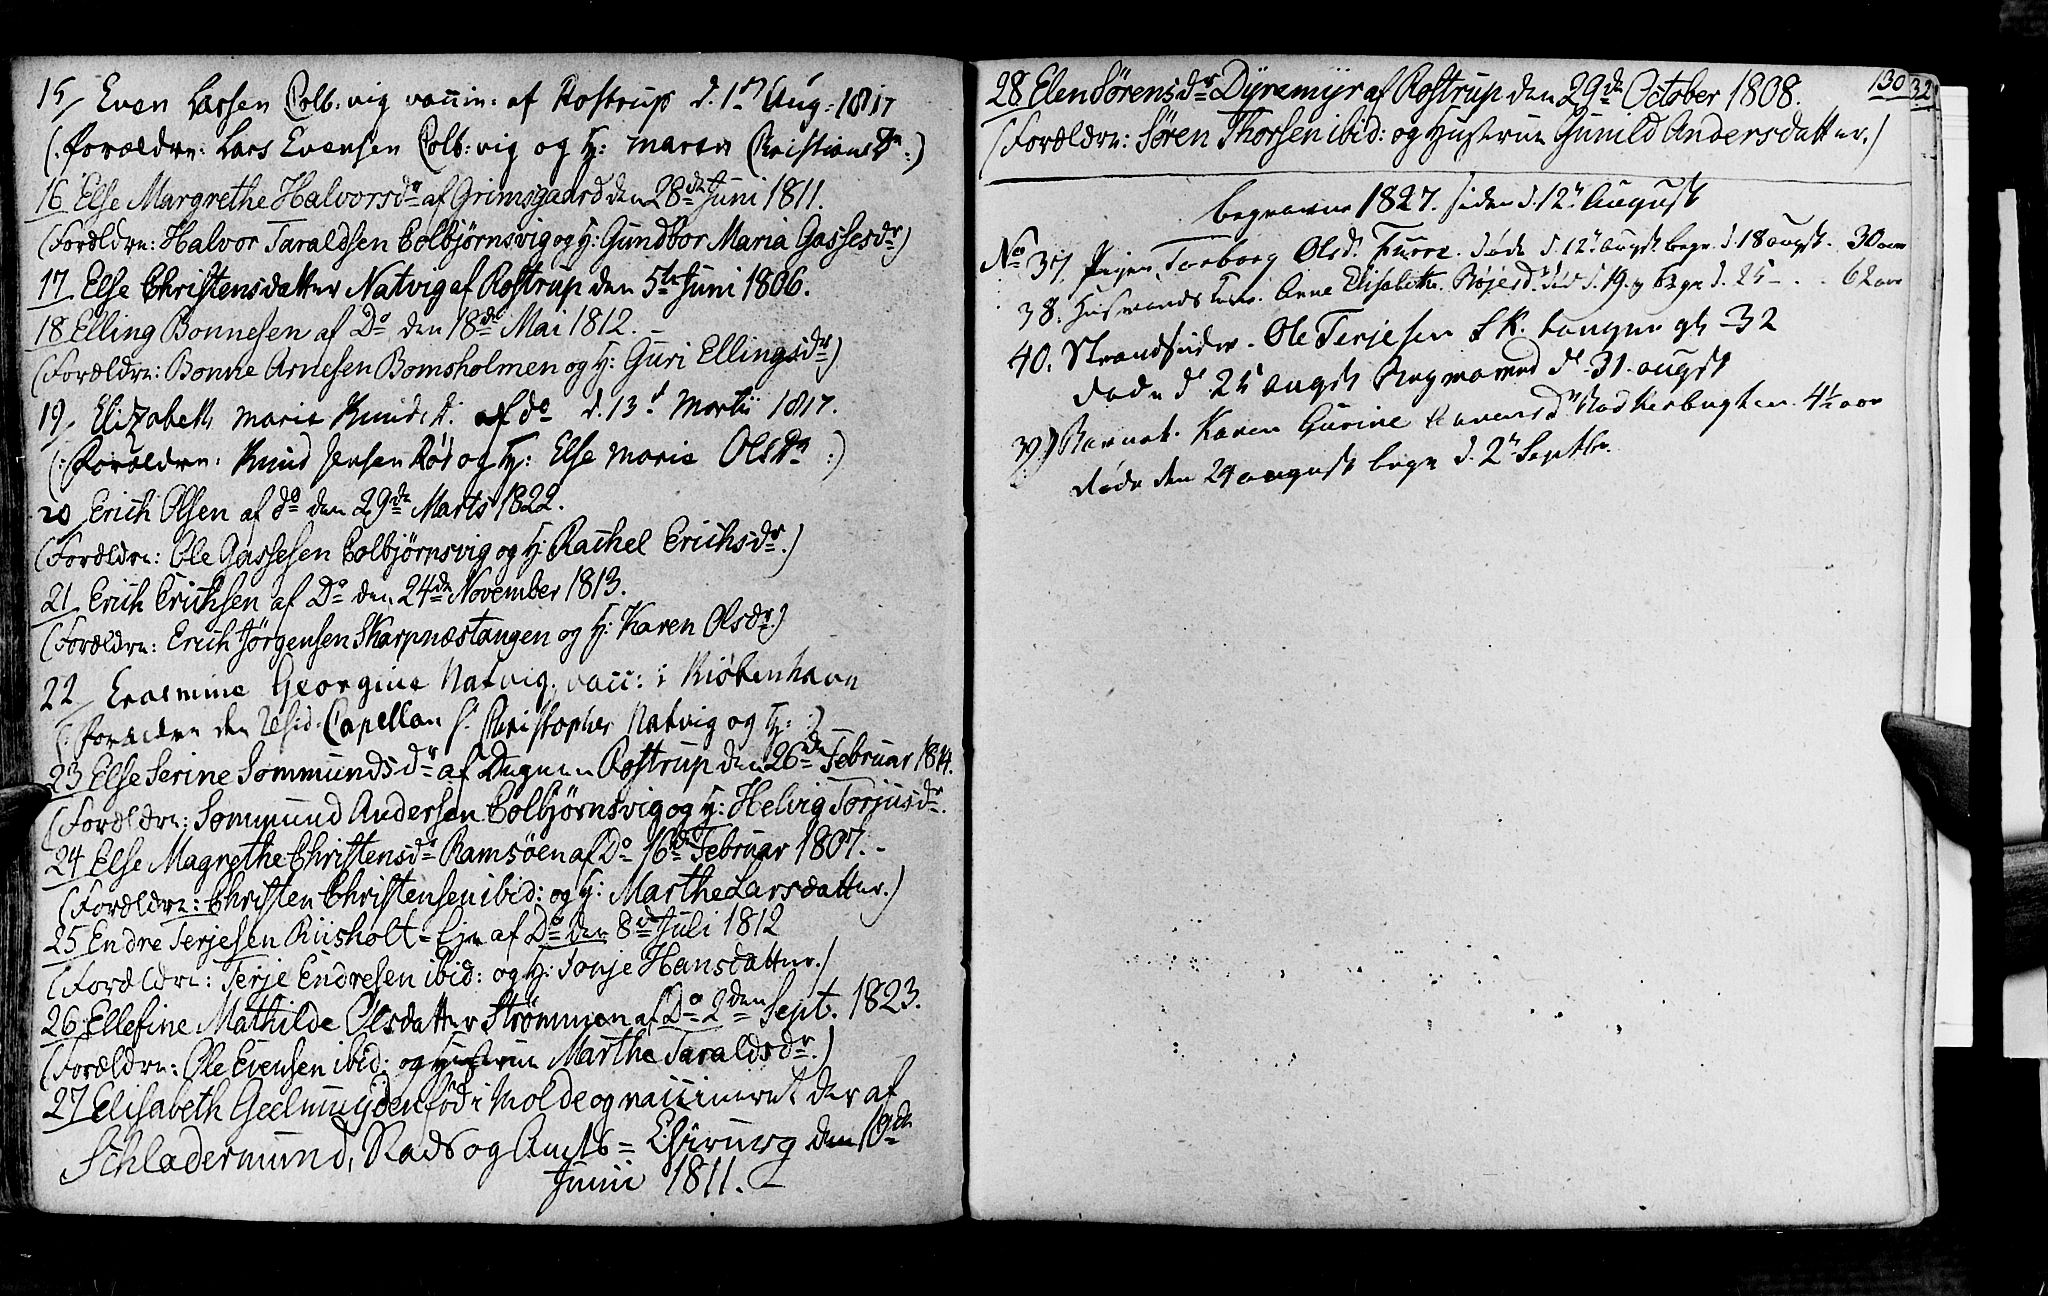 15 Even Larsen Colb:vig vaccin: af Rostrup d. 1st Aug: 1817
(: Forældre: Lars Evensen Colb:vig og H: Maren Christiansdr :)
16 Else Margrethe Halvorsdr af Grimsgaard den 28de Juni 1811.
(Forældre: Halvor Taraldsen Colbjørnsvig og H: Gundbor Maria Gassesdr)
17 Else Christensdatter Natvig af Rostrup den 5te Juni 1806.
18 Elling Bonnesen af Do den 18de Mai 1812. –
(Forældre: Bonne Arnesen Bomsholmen og H: Guri Ellingsdr)
19 Elizabeth Marie Knudsd. af do d. 13d Martii 1817.
(: Forældre: Knud Jensen Rød og H: Else Marie Olsdr :)
20 Erich Olsen af do den 29de Marts 1822.
(Forældre: Ole Gassesen Colbjørnsvig og H: Rachel Erichsdr.)
21 Erich Erichsen af Do den 24de November 1813.
(Forældre: Erich Jørgensen Skarpnæstangen og H: Karen Olsdr.)
22 Erasmine Georgine Natvig, vacc: i Kiöbenhavn
(: Forældre den Resid: Capellan Christopher Natvig og H: :)
23 Else Serine Sommundsdr af Degnen Rostrup den 26de Februar 1814.
(Forældre: Sommund Andersen Colbjørnsvig og H: Helvig Torjusdr.
24 Else Magrethe Christensdr Ramsöen af Do 16de Februar 1807. –
(Forældre: Christen Christensen ibid: og H: Marthe Larsdatter.)
25 Endre Terjesen Riisholt=Eie af Do den 8de Juli 1812
(Forældre: Terje Endresen ibid: og H: Tonje Hansdatter.)
26 Ellefine Mathilde Olsdatter Strømmen af Do 2den Sept. 1823.
(Forældre: Ole Evensen ibid: og Hustrue Marthe Taraldsdr.)
27 Elisabeth Geelmuyden fød i Molde og vaccineret der af
Schladermund, Stads og Amts=Chirurg den 19de
Junii 1811. –
130 32
28 Elen Sörensdr Dyremyr af Rostrup den 29de October 1808.
(Forældre: Sören Thorsen ibid: og Hustrue Gunild Andersdatter.)
Begravne 1827. siden d. 12te August
No 37, Pigen Torborg Olsd. Furre. døde d. 12te Augst begr. d. 18 augst. 30 aar
38. Husmands Anne Elisabeth d. 19. begr d. 25 – . . 62 aar
40. Strandsidder. Ole Terjesen Sk. tangen gl. 32
døde d. 25 augst d. 31. augst
39) Barnet. Karen Gurine 4½ aar
døde den 29 august begr d. 2n Septbr.